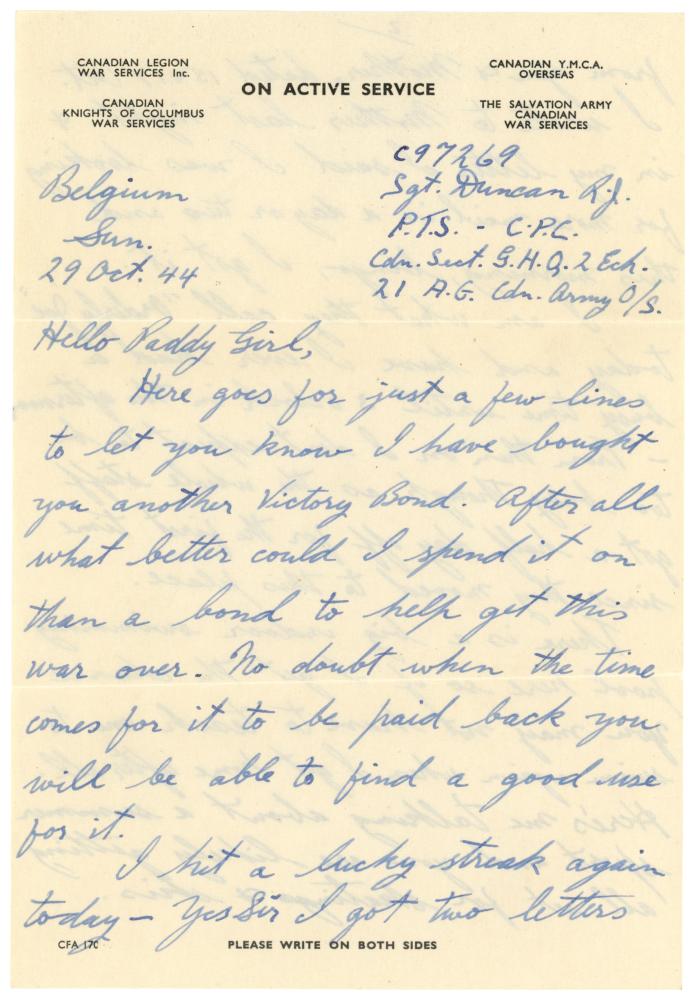 CANADIAN LEGION
WAR SERVICES Inc.
CANADIAN
KNIGHTS OF COLUMBUS
WAR SERVICES
ON ACTIVE SERVICE
CANADIAN Y.M.C.A.
OVERSEAS
THE SALVATION ARMY
CANADIAN
WAR SERVICES
C97269
Sgt. Duncan R.J.
P.T.S. - C.P.C.
Cdn. Sect. G.H.Q. 2 Ech.
21 A.G. Cdn. Army O/S.
Belgium
Sun.
29 Oct. 44
Hello Paddy Girl,
Here goes for just a few lines
to let you know I have bought
you another Victory Bond. After all
what better could I spend it on
than a bond to help get this
war over. No doubt when the time
comes for it to be paid back you
will be able to find a good use
for it.
I hit a lucky streak again
today - Yes Sir I got two letters
CFA 170
PLEASE WRITE ON BOTH SIDES